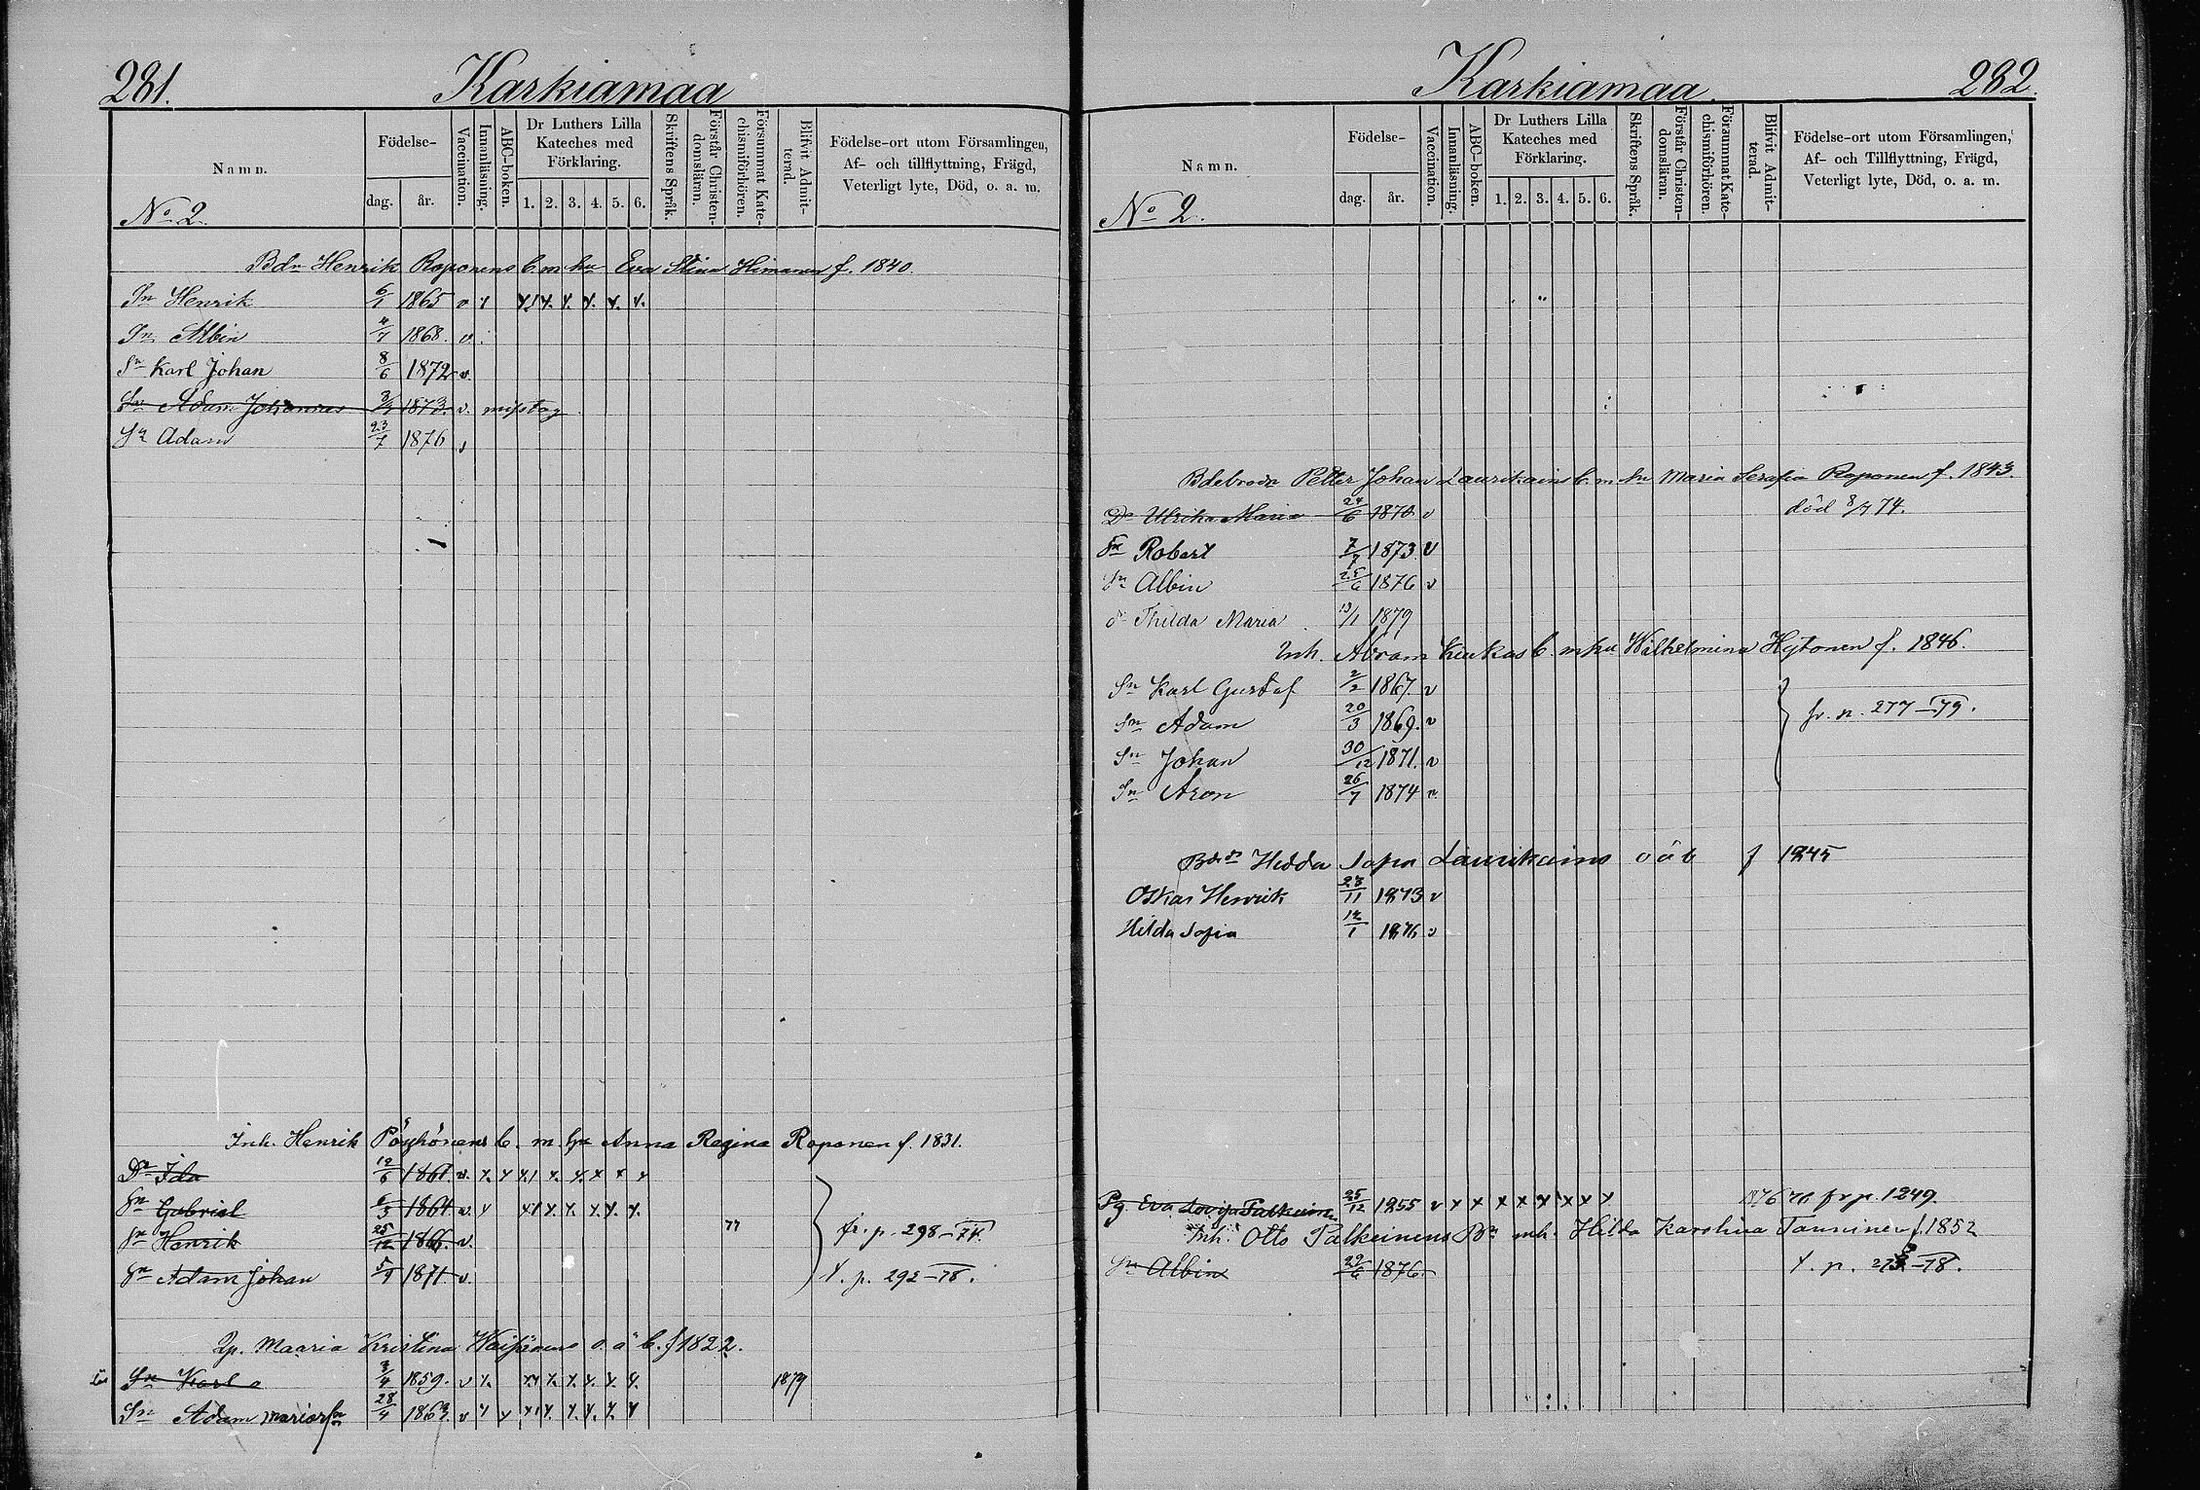 281.
Karkiamaa
Namn.
No 2.
Födelse-
dag.
år.
Vaccination.
Innanläsning.
ABC-boken.
Dr Luthers Lilla Kateches med Förklaring.
1. 2. 3. 4. 5. 6.
Skriftens Språk.
Förstår Christendomsläran.
Försummat Katechismiförhören.
Blifvit Admitterad.
Födelse-ort utom Församlingen,
Af- och tillflyttning, Frägd,
Veterligt lyte, Död, o. a. m.
Bdn Henrik Roponens b. m hu Eva Stina Himanen f. 1840.
Sn Henrik 6/1 1865 v x x x. x. x. x. x.
Sn Albin 4/7 1868. v
Sn Karl Johan 8/6 1872 v.
Sn Adam Johannes 1873. v. misstag
Sn Adam 23/7 1876
Inh. Henrik Pöyhönens b. m hu Anna Regina Roponen f. 1831.
Dr Ida 12/6 1861. v. x. x x x. x. x x x
Sn Gabriel 6/3 1864 v. x x x. x. x. x. x.
Sn Henrik 25/12 1866. v. 77 fr. p. 298-74.
Sn Adam Johan 5/9 1871 v. t. p. 292-78.
Maaria Kristina o. ä b. f 1822.
Sn Karl 3/4 1859. v x. x x. x. x. x. x. 1879
Sn Adam 28/4 1863. v x x x x. x. x. x. x
282.
Karkiamaa.
Namn.
No 2.
Födelse-
dag.
år.
Vaccination.
Innanläsning.
ABC-boken.
Dr Luthers Lilla Kateches med Förklaring.
1. 2. 3. 4. 5. 6.
Skriftens Språk.
Förstår Christendomsläran.
Försummat Katechismiförhören.
Blifvit Admitterad.
Födelse-ort utom Församlingen,
Af- och Tillflyttning, Frägd,
Veterligt lyte, Död, o. a. m.
Petter Johan Laurikains b. m hu Maria Serafia Roponen f. 1843.
Dr Ulrika Maria 24/6 1870 v död 8/7 74.
Sn Robert 7/7 1873 v
Sn Albin 25/6 1876 v
dr Thilda Maria 13/1 1879
Inh. Abram Kiukas b. m hu Wilhelmina Hytonen f. 1846.
Sn Karl Gustaf 2/2 1867. v
Sn Adam 20/3 1869. v fr. p. 277-79.
Sn Johan 30/12 1871. v
Sn Aron 26/7 1874 v.
Hedda Sofia Laurikains o ä b f 1845
Oskar Henrik 23/11 1873 v
Hilda Sofia 12/1 1876 v
Pg Eva Lovisa 25/12 1855 v x x x x x x x x fr p. 1249.
Inh. Otto Talkeinens Bn mh. Hilda Karolina Tanninen f. 1852
Sn Albin 29/6 1876.